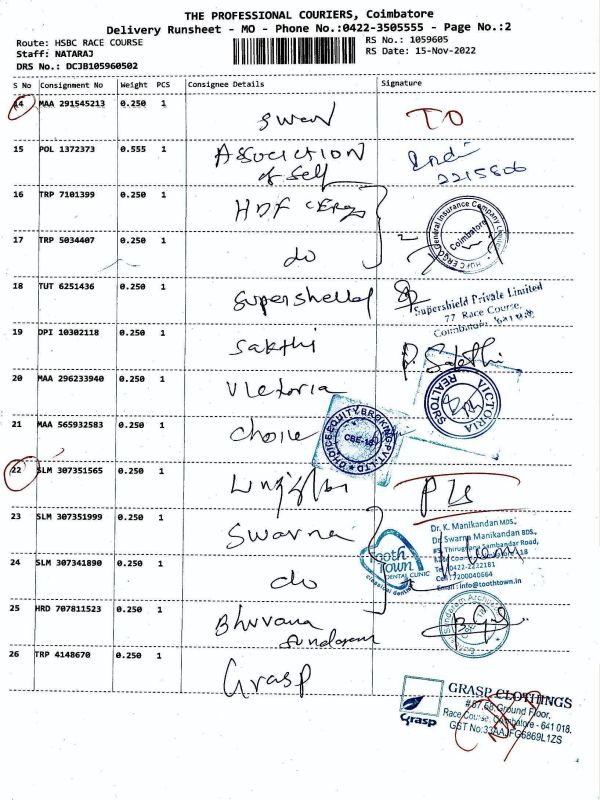 THE PROFESSIONAL COURIERS, Coimbatore
Delivery Runsheet - MO - Phone No.:0422-3505555 - Page No.:2
Route: HSBC RACE COURSE
Staff: NATARAJ
DRS No.: DCJB105960502
RS No.: 1059605
RS Date: 15-Nov-2022
S No Consignment No Weight PCS Consignee Details Signature
14 MAA 291545213 0.250 1 TO
15 POL 1372373 0.555 1 Association of Self 2215806
16 TRP 7101399 0.250 1 HDF
17 TRP 5034407 0.250 1 do
18 TUT 6251436 0.250 1
Supershield Private Limited
77 Race Course,
19 DPI 10302118 0.250 1 Sakthi P. Sakthi
20 MAA 296233940 0.250 1 Victoria
VICTORIA REALTORS
21 MAA 565932583 0.250 1 Choice
CHOICE EQUITY BROKING PVT LTD
22 SLM 307351565 0.250 1
23 SLM 307351999 0.250 1 Swarna
24 SLM 307341890 0.250 1 do
Tooth Town
DENTAL CLINIC
Dr. K. Manikandan MDS.,
Dr. Swarna Manikandan BDS.,
Tel: 0422-2222181
Cell: 7200040664
Email: info@toothtown.in
25 HRD 707811523 0.250 1 Bhuvana Sundaram
26 TRP 4148670 0.250 1 Grasp
Grasp
GRASP CLOTHINGS
#67,68, Ground Floor,
Race Course, Coimbatore - 641 018.